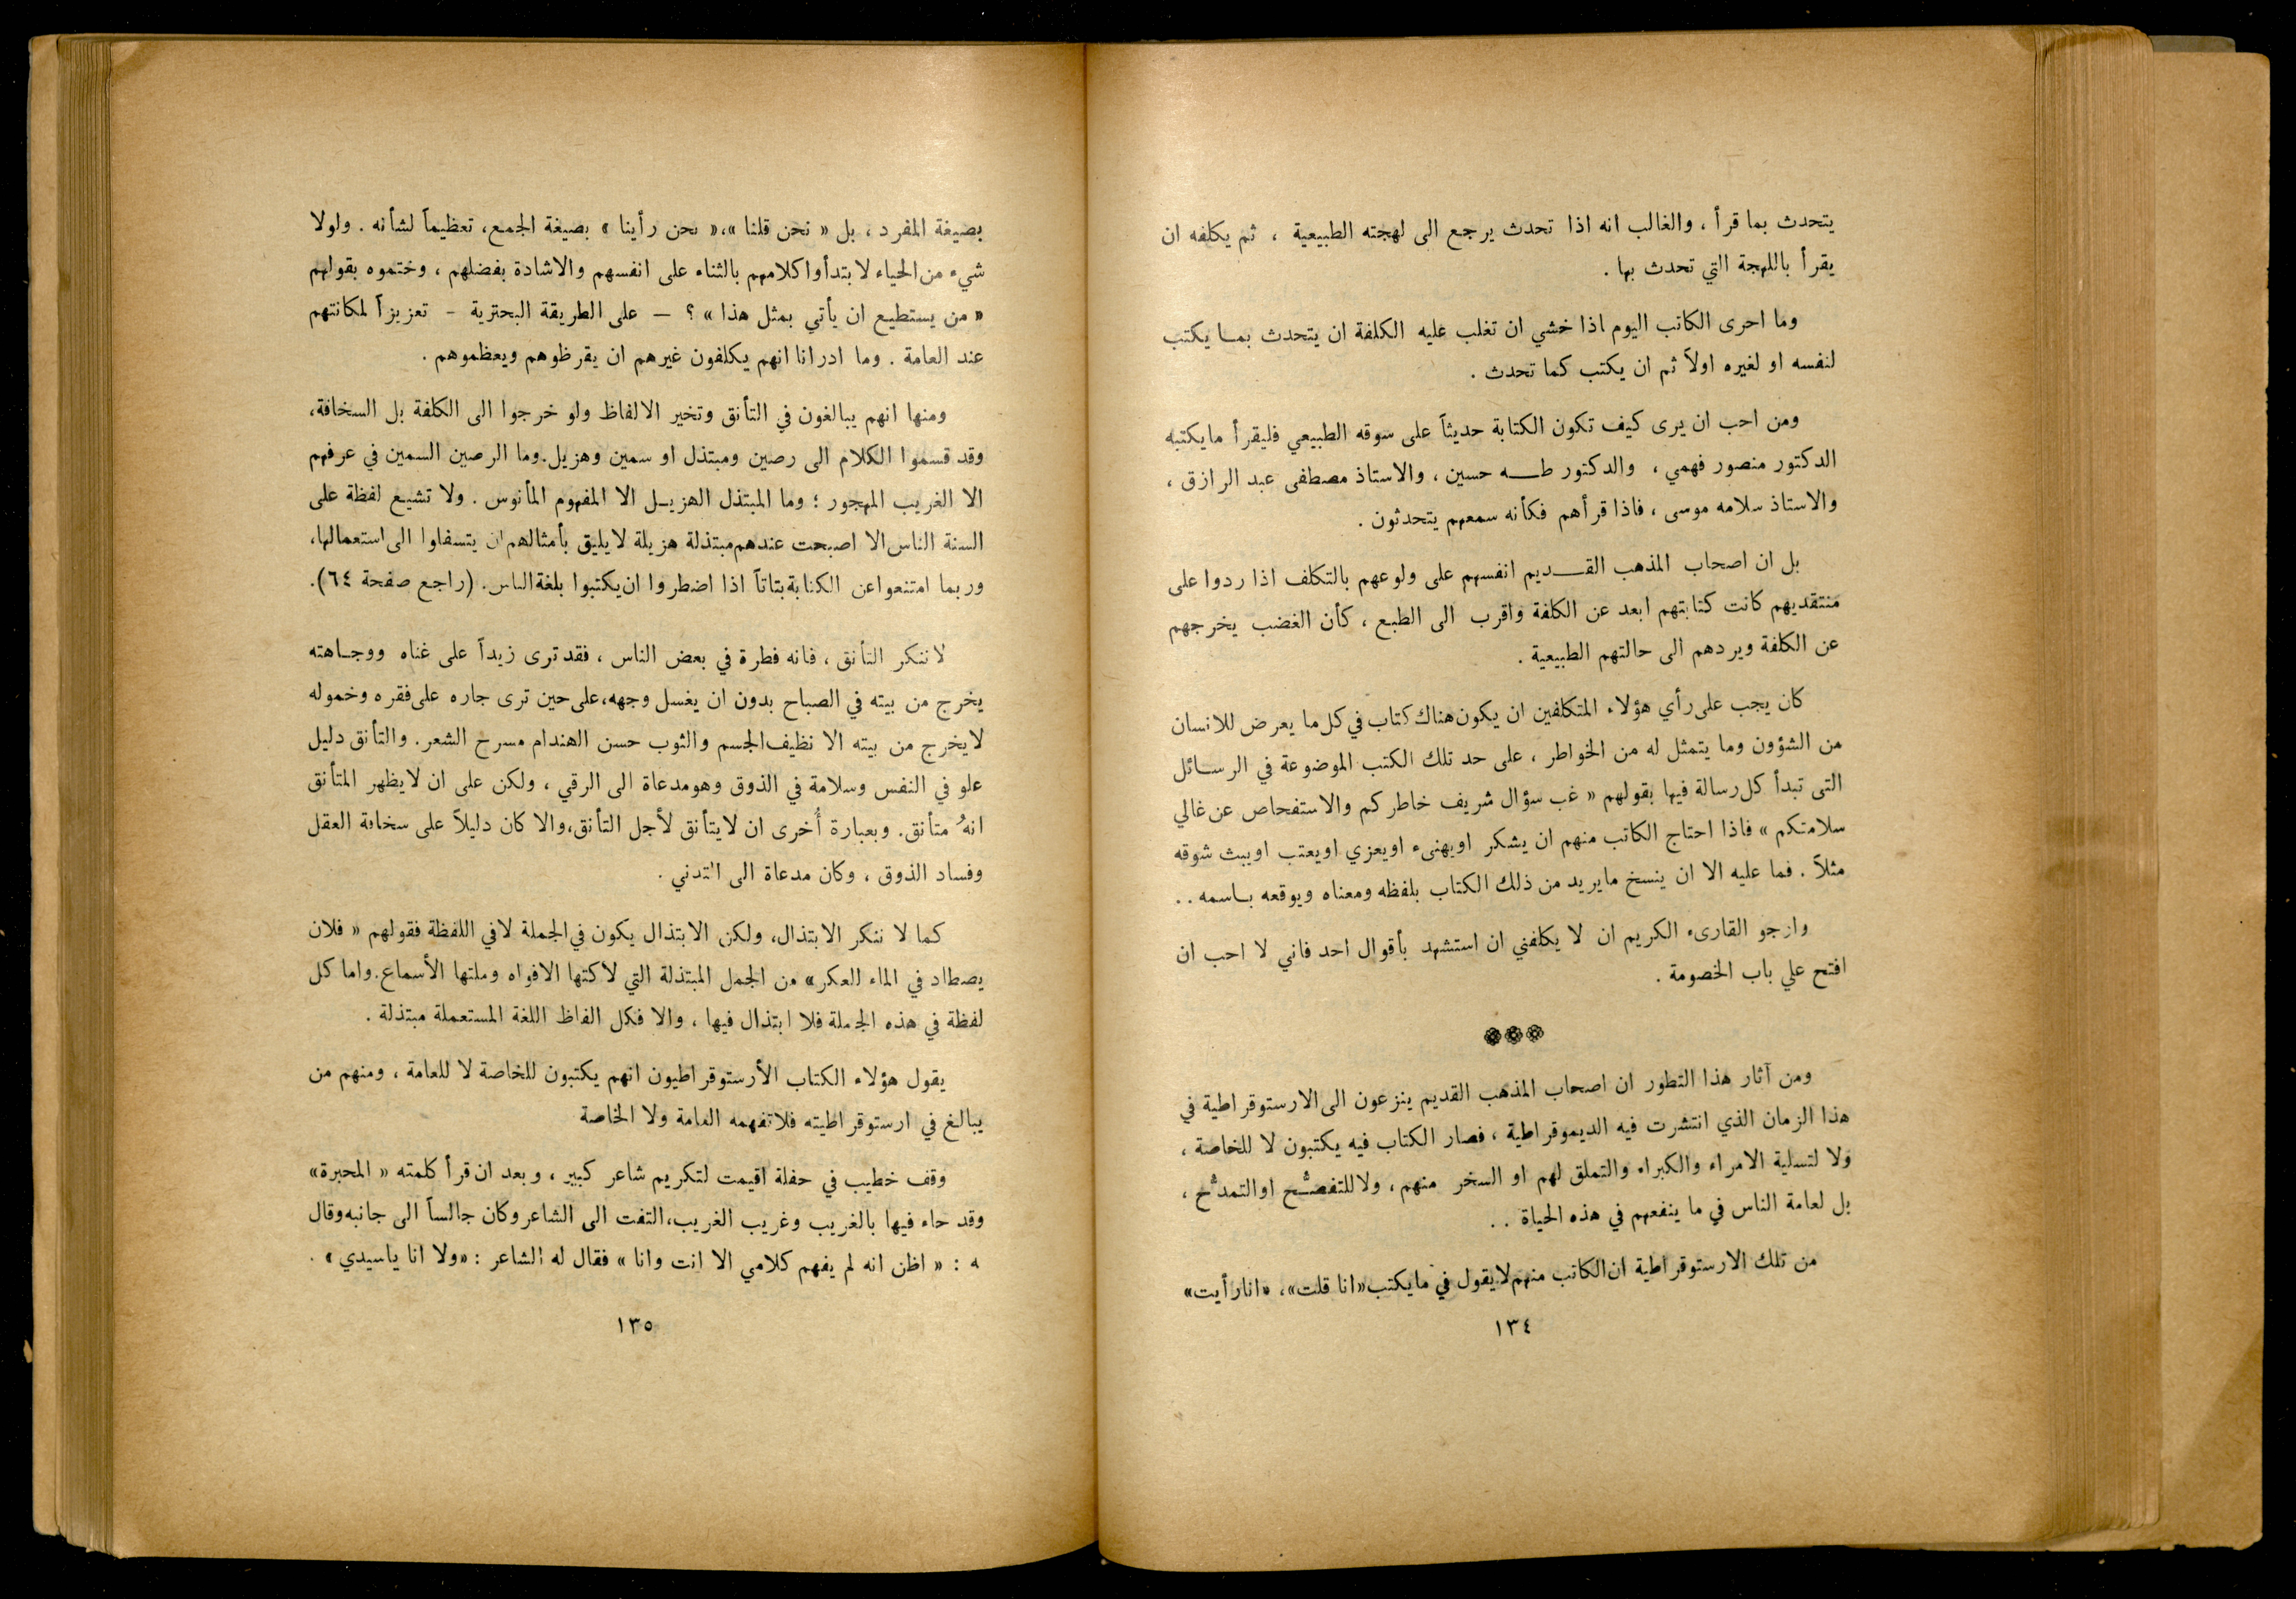 يتحدث بما قرأ ، والغالب انه اذا تحدث يرجع الى لهجته الطبيعية ، ثم يكلفه ان
يقرأ باللهجة التي تحدث بها .
وما احرى الكاتب اليوم اذا خشي ان تغلب عليه الكلفة ان يتحدث بما يكتب
لنفسه او لغيره اولاً ثم ان يكتب كما تحدث .
ومن احب ان يرى كيف تكون الكتابة حديثاً على سوقه الطبيعي فليقرأ ما يكتبه
الدكتور منصور فهمي ، والدكتور طه حسين ، والاستاذ مصطفى عبد الرازق ،
والاستاذ سلامه موسى ، فاذا قرأهم فكأنه سمعهم يتحدثون .
بل ان اصحاب المذهب القديم انفسهم على ولوعهم بالتكلف اذا ردوا على
منتقديهم كانت كتابتهم ابعد عن الكلفة واقرب الى الطبع ، كأن الغضب يخرجهم
عن الكلفة ويردهم الى حالتهم الطبيعية .
كان يجب على رأي هؤلاء المتكلفين ان يكون هناك كتاب في كل ما يعرض للانسان
من الشؤون وما يتمثل له من الخواطر ، على حد تلك الكتب الموضوعة في الرسائل
التى تبدأ كل رسالة فيها بقولهم « غب سؤال شريف خاطركم والاستفحاص عن غالي
سلامتكم » فاذا احتاج الكاتب منهم ان يشكر او يهنىء او يعزي او يعتب او يبث شوقه
مثلاً . فما عليه الا ان ينسخ ما يريد من ذلك الكتاب بلفظه ومعناه ويوقعه باسمه . .
وارجو القارىء الكريم ان لا يكلفني ان استشهد بأقوال احد فاني لا احب ان
افتح علي باب الخصومة .
ومن آثار هذا التطور ان اصحاب المذهب القديم ينزعون الى الارستوقراطية في
هذا الزمان الذي انتشرت فيه الديموقراطية ، فصار الكتاب فيه يكتبون لا للخاصة ،
ولا لتسلية الامراء والكبراء والتملق لهم او السخر منهم ، ولا للتفصُّح او التمدُّح ،
بل لعامة الناس في ما ينفعهم في هذه الحياة . .
من تلك الارستوقراطية ان الكاتب منهم لا يقول في ما يكتب «انا قلت»، «انا رأيت»
١٣٤
بصيغة المفرد ، بل « نحن قلنا »،« نحن رأينا » بصيغة الجمع، تعظيماً لشأنه . ولولا
شيء من الحياء لابتدأوا كلامهم بالثناء على انفسهم والاشادة بفضلهم ، وختموه بقولهم
« من يستطيع ان يأتي بمثل هذا » ؟ — على الطريقة البحترية - تعزيزاً لمكانتهم
عند العامة . وما ادرانا انهم يكلفون غيرهم ان يقرظوهم ويعظموهم .
ومنها انهم يبالغون في التأنق وتخير الالفاظ ولو خرجوا الى الكلفة بل السخافة،
وقد قسموا الكلام الى رصين ومبتذل او سمين وهزيل. وما الرصين السمين في عرفهم
الا الغريب المهجور ؛ وما المبتذل الهزيل الا المفهوم المأنوس . ولا تشيع لفظة على
السنة الناس الا اصبحت عندهم مبتذلة هزيلة لا يليق بأمثالهم ان يتسفلوا الى استعمالها،
وربما امتنعوا عن الكتابة بتاتاً اذا اضطروا ان يكتبوا بلغة الناس . (راجع صفحة ٦٤).
لا ننكر التأنق ، فانه فطرة في بعض الناس ، فقد ترى زيداً على غناه ووجاهته
يخرج من بيته في الصباح بدون ان يغسل وجهه، على حين ترى جاره على فقره وخموله
لا يخرج من بيته الا نظيف الجسم والثوب حسن الهندام مسرح الشعر . والتأنق دليل
علو في النفس وسلامة في الذوق وهو مدعاة الى الرقي ، ولكن على ان لا يظهر المتأنق
انهُ متأنق . وبعبارة أُخرى ان لا يتأنق لأجل التأنق، والا كان دليلاً على سخافة العقل
وفساد الذوق ، وكان مدعاة الى التدني .
كما لا ننكر الابتذال، ولكن الابتذال يكون في الجملة لا في اللفظة فقولهم « فلان
يصطاد في الماء العكر» من الجمل المبتذلة التي لاكتها الافواه وملتها الأسماع. واما كل
لفظة في هذه الجملة فلا ابتذال فيها ، والا فكل الفاظ اللغة المستعملة مبتذلة .
يقول هؤلاء الكتاب الأرستوقراطيون انهم يكتبون للخاصة لا للعامة ، ومنهم من
يبالغ في ارستوقراطيته فلا تفهمه العامة ولا الخاصة
وقف خطيب في حفلة اقيمت لتكريم شاعر كبير ، وبعد ان قرأ كلمته « المحبرة»
وقد جاء فيها بالغريب وغريب الغريب، التفت الى الشاعر وكان جالساً الى جانبه وقال
ه : « اظن انه لم يفهم كلامي الا انت وانا » فقال له الشاعر : «ولا انا ياسيدي» .
١٣٥